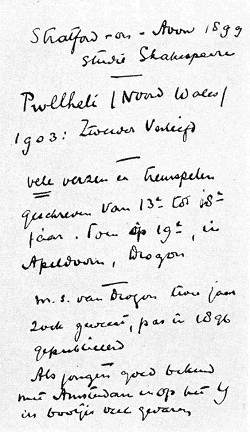 Stratford-on-Avon 1899
studie Shakespeare
Pwllheli (Noord Wales)
1903: Zwervers Verliefd
vele verzen en treurspelen
geschreven van 13e tot 18e
jaar. Toen op 19e, in
Apeldoorn, Drogon
m.s. van Drogon twee jaar
zoek geweest, pas in 1896
gepubliceerd
Als jongen goed bekend
met Amsterdam en op het Y
in bootjes veel gevaren